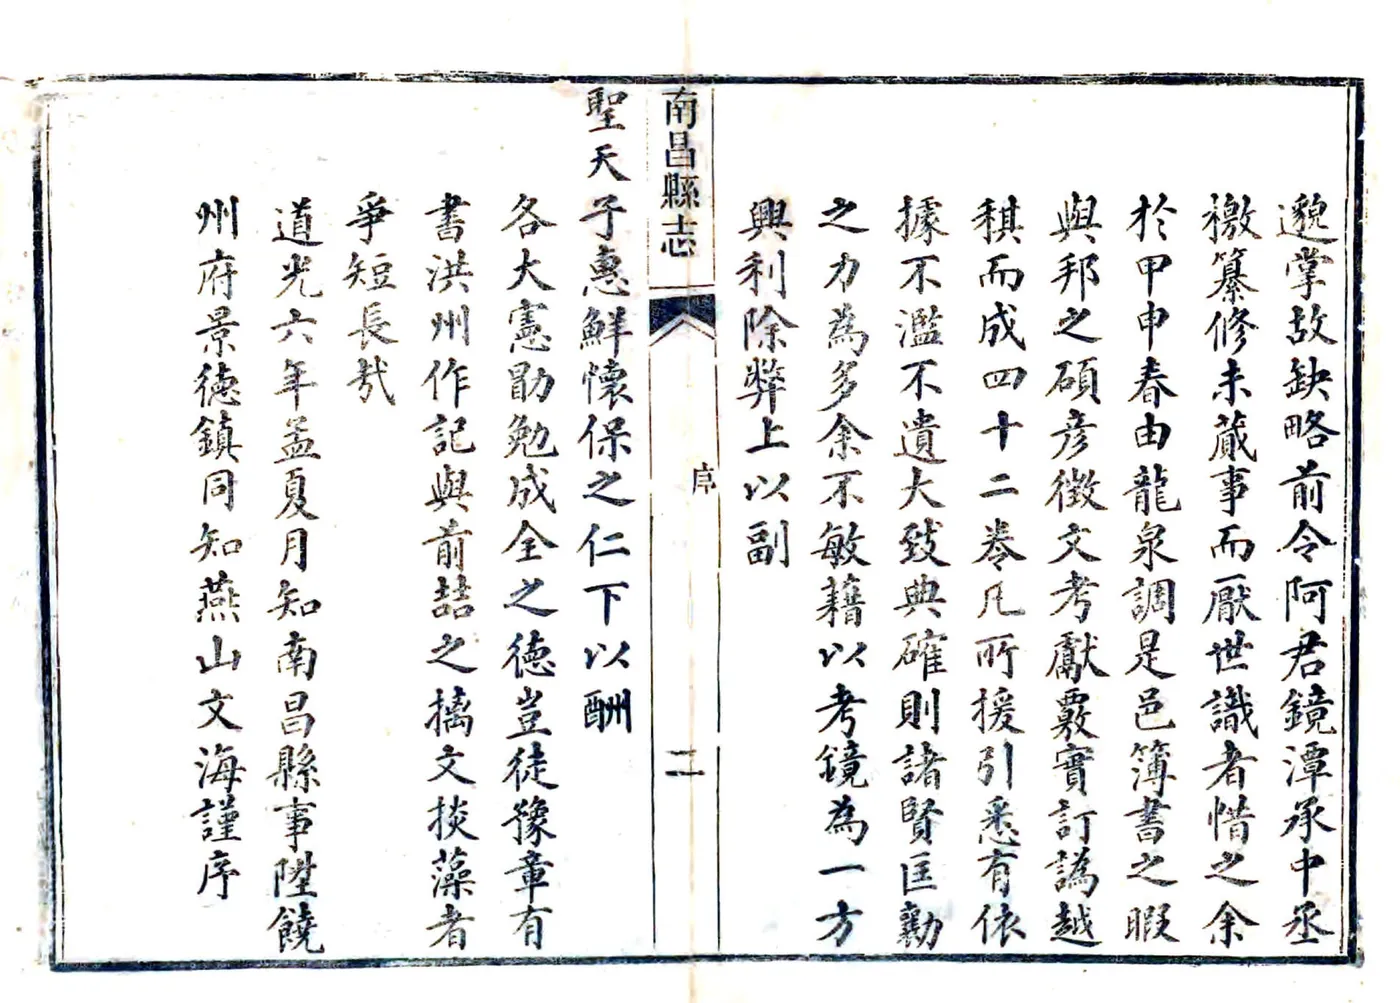 邈掌故缺略前令阿君鏡潭承中丞
檄纂修未蕆事而厭世識者惜之余
於甲申春由龍泉調是邑簿書之暇
與邦之碩彥徵文考獻覈實訂譌越
稘而成四十二卷凡所援引悉有依
據不濫不遺大致典確則諸賢匡勷
之力為多余不敏藉以考鏡為一方
興利除弊上以副
南昌縣志
序
二
聖天子惠鮮懷保之仁下以酬
各大憲勖勉成全之德豈徒豫章有
書洪州作記與前喆之摛文掞藻者
爭短長哉
道光六年孟夏月知南昌縣事陞饒
州府景德鎮同知燕山文海謹序